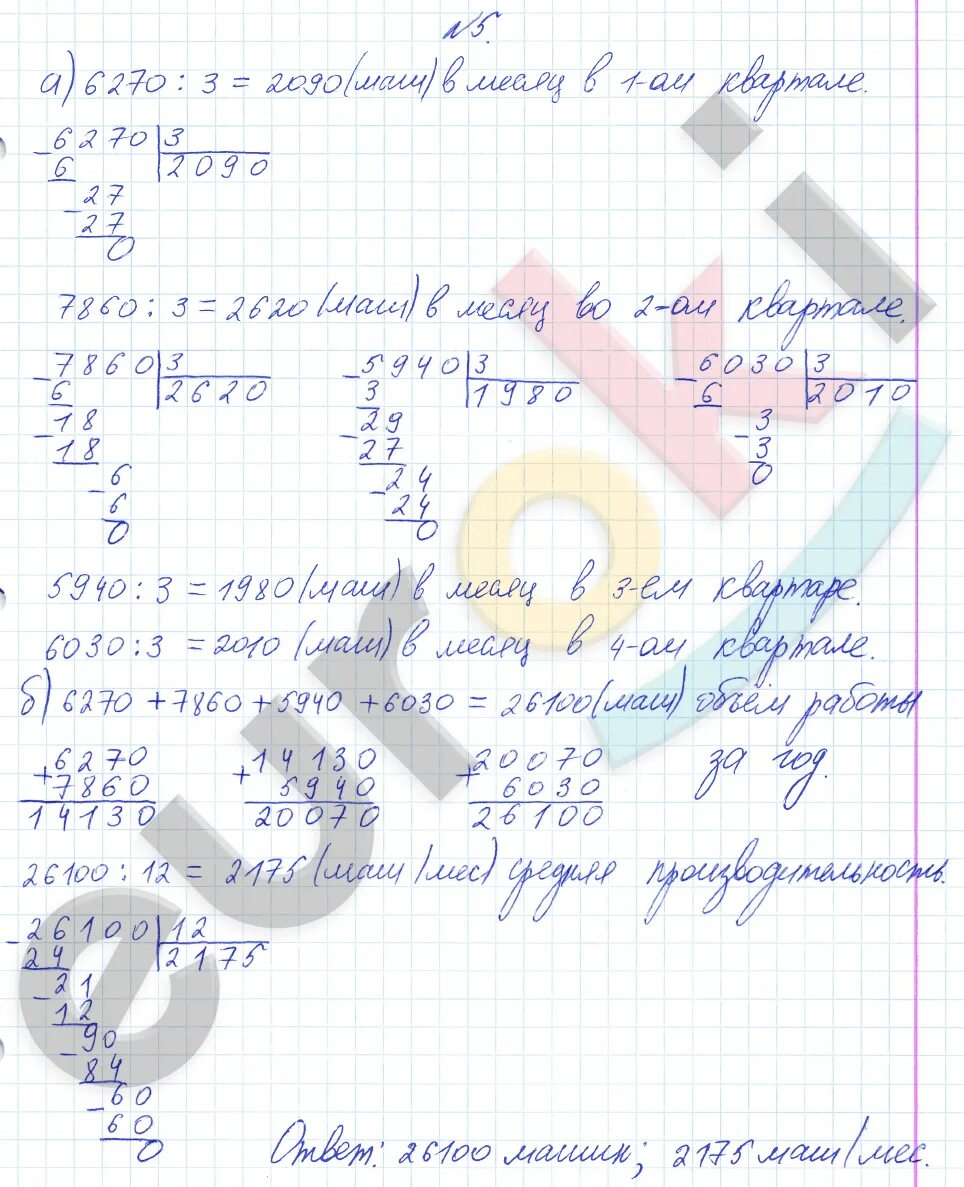 №5.
а) 6270 : 3 = 2090 (маш) в месяц в 1-ом квартале.
6270 | 3
6 | 2090
27
27
0
7860 : 3 = 2620 (маш) в месяц во 2-ом квартале.
7860 | 3
6 | 2620
18
18
6
6
0
5940 | 3
3 | 1980
29
27
24
24
0
6030 | 3
6 | 2010
3
3
0
5940 : 3 = 1980 (маш) в месяц в 3-ем квартаре.
6030 : 3 = 2010 (маш) в месяц в 4-ом квартале.
б) 6270 + 7860 + 5940 + 6030 = 26100 (маш) объём работы
за год.
+ 6270
7860
14130
+ 14130
5940
20070
+ 20070
6030
26100
26100 : 12 = 2175 (маш/мес) средняя производительность.
26100 | 12
24 | 2175
21
12
90
84
60
60
0
Ответ: 26100 машин; 2175 маш/мес.
euroki